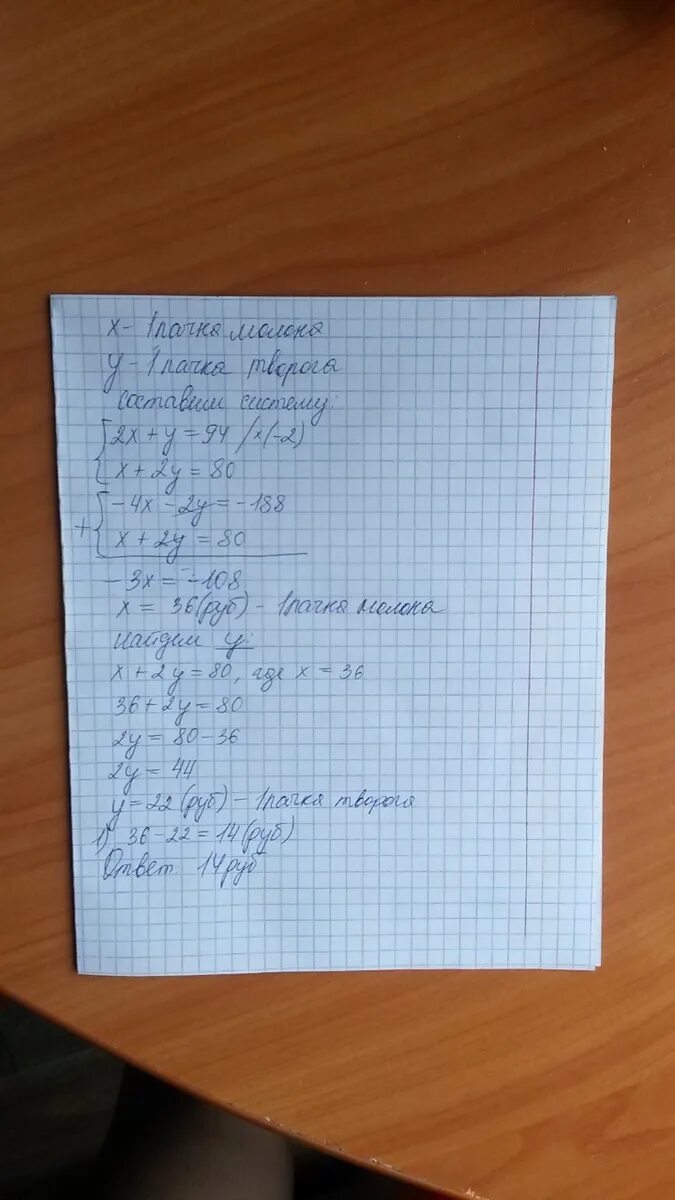 х - 1 пачка молока
у - 1 пачка творога
составим систему:
2х + у = 94 /×(-2)
х + 2у = 80
-4х - 2у = -188
+ х + 2у = 80
-3х = -108
х = 36(руб) - 1 пачка молока
найдем у:
х + 2у = 80, где х = 36
36 + 2у = 80
2у = 80 - 36
2у = 44
у = 22 (руб) - 1 пачка творога
1) 36 - 22 = 14 (руб)
Ответ 14 руб